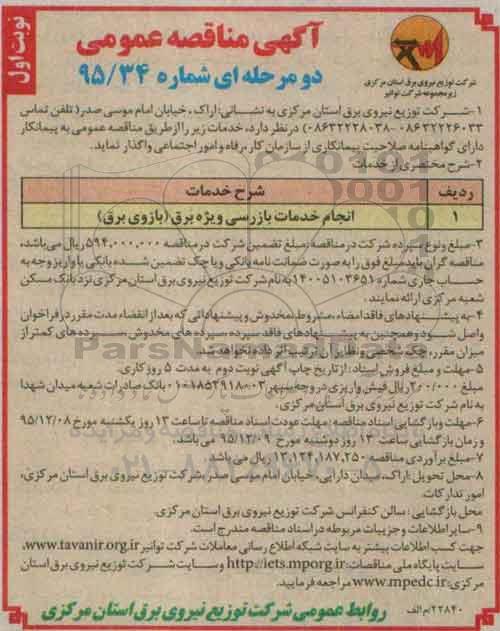 نوبت اول
آگهی مناقصه عمومی
دو مرحله ای شماره ۹۵/۳۴
شرکت توزیع نیروی برق استان مرکزی
زیرمجموعه شرکت توانیر
۱-شرکت توزیع نیروی برق استان مرکزی به نشانی: اراک، خیابان امام موسی صدر( تلفن تماس
۰۸۶۳۲۲۲۶۰۳۳ -۰۸۶۳۲۲۲۸۰۳۸) در نظر دارد، خدمات زیر را از طریق مناقصه عمومی به پیمانکار
دارای گواهینامه صلاحیت پیمانکاری از سازمان کار، رفاه و امور اجتماعی واگذار نماید.
۲-شرح مختصری از خدمات
ردیف شرح خدمات
۱ انجام خدمات بازرسی ویژه برق (بازوی برق)
۳-مبلغ و نوع سپرده شرکت در مناقصه: مبلغ تضمین شرکت در مناقصه ۵۹۴,۰۰۰,۰۰۰ ریال می‌باشد،
مناقصه گران باید مبلغ فوق را به صورت ضمانت نامه بانکی و یا چک تضمین شده بانکی یا واریز وجه به
حساب جاری شماره ۱۴۰۰۵۱۰۳۶۵۱ به نام شرکت توزیع نیروی برق استان مرکزی نزد بانک مسکن
شعبه مرکزی ارائه نمایند.
۴-به پیشنهادهای فاقد امضاء، مشروط، مخدوش و پیشنهاداتی که بعد از انقضاء مدت مقرر در فراخوان
واصل شود و همچنین به پیشنهادهای فاقد سپرده، سپرده های مخدوش، سپرده های کمتر از
میزان مقرر، چک شخصی و نظایر آن ترتیب اثر داده نخواهد شد.
۵-مهلت و مبلغ فروش اسناد: از تاریخ چاپ آگهی نوبت دوم به مدت ۵ روز کاری.
مبلغ ۲۰۰/۰۰۰ ریال فیش واریزی در وجه سپهر بانک صادرات شعبه میدان شهدا
به نام شرکت توزیع نیروی برق استان مرکزی.
۶-مهلت و بازگشایی اسناد مناقصه: مهلت عودت اسناد مناقصه تا ساعت ۱۳ روز یکشنبه مورخ ۹۵/۱۲/۰۸
و زمان بازگشایی ساعت ۱۳ روز دوشنبه مورخ ۹۵/۱۲/۰۹ می باشد.
۷-مبلغ برآوردی مناقصه: ۱۳,۱۲۴,۱۸۷,۲۵۰ ریال می باشد.
۸-محل تحویل: اراک، میدان دارایی، خیابان امام موسی صدر، شرکت توزیع نیروی برق استان مرکزی،
امور تدارکات.
محل بازگشایی: سالن کنفرانس شرکت توزیع نیروی برق استان مرکزی.
۹-سایر اطلاعات و جزییات مربوطه در اسناد مناقصه مندرج است.
جهت کسب اطلاعات بیشتر به سایت شبکه اطلاع رسانی معاملات شرکت توانیر www.tavanir.org.ir،
سایت پایگاه ملی مناقصات: http://iets.mporg.ir و سایت شرکت توزیع نیروی برق استان
مرکزی: www.mpedc.ir مراجعه فرمایید.
۲۲۸۴۰/م الف
روابط عمومی شرکت توزیع نیروی برق استان مرکزی